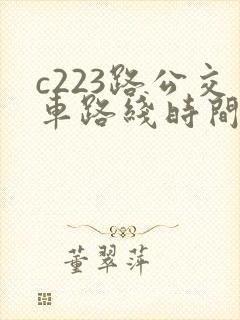 c223路公交
車路綫時間
董翠萍